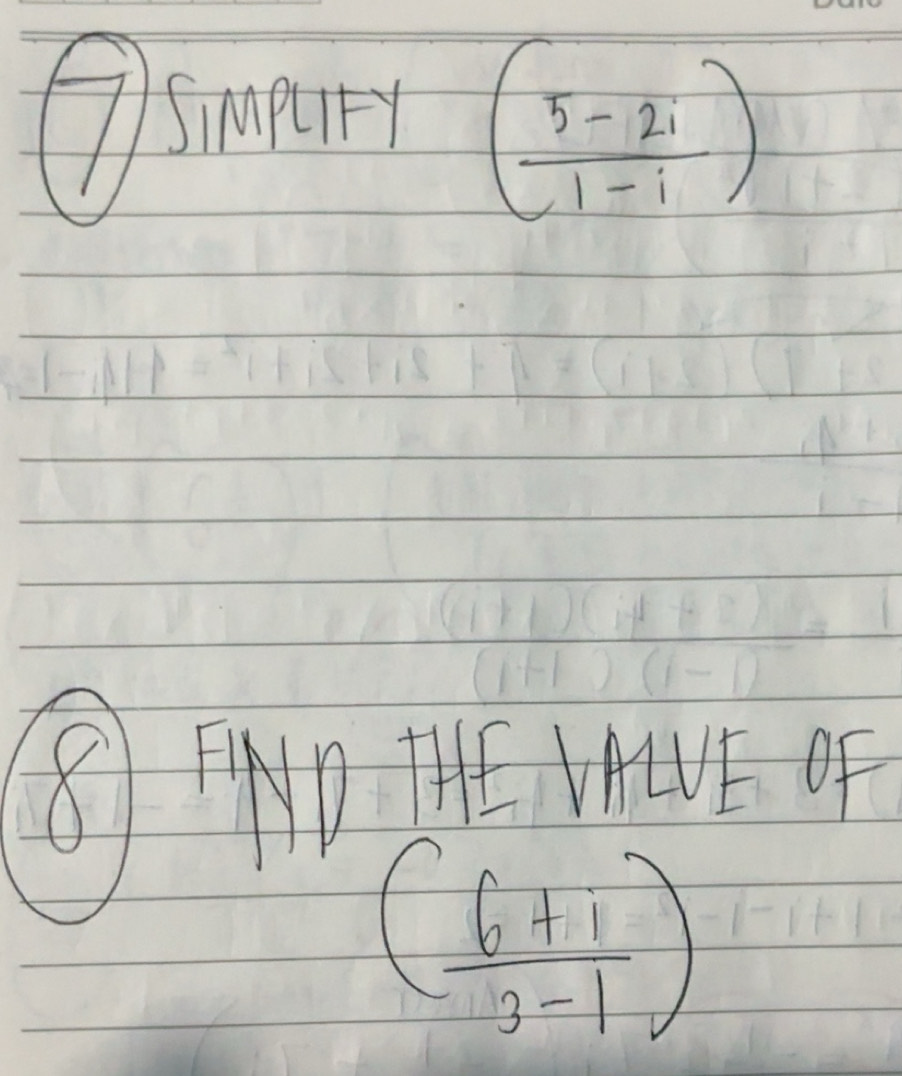 Date
7 SIMPLIFY (5 - 2i / 1 - i)
8 FIND THE VALUE OF
(6 + i / 3 - 1)